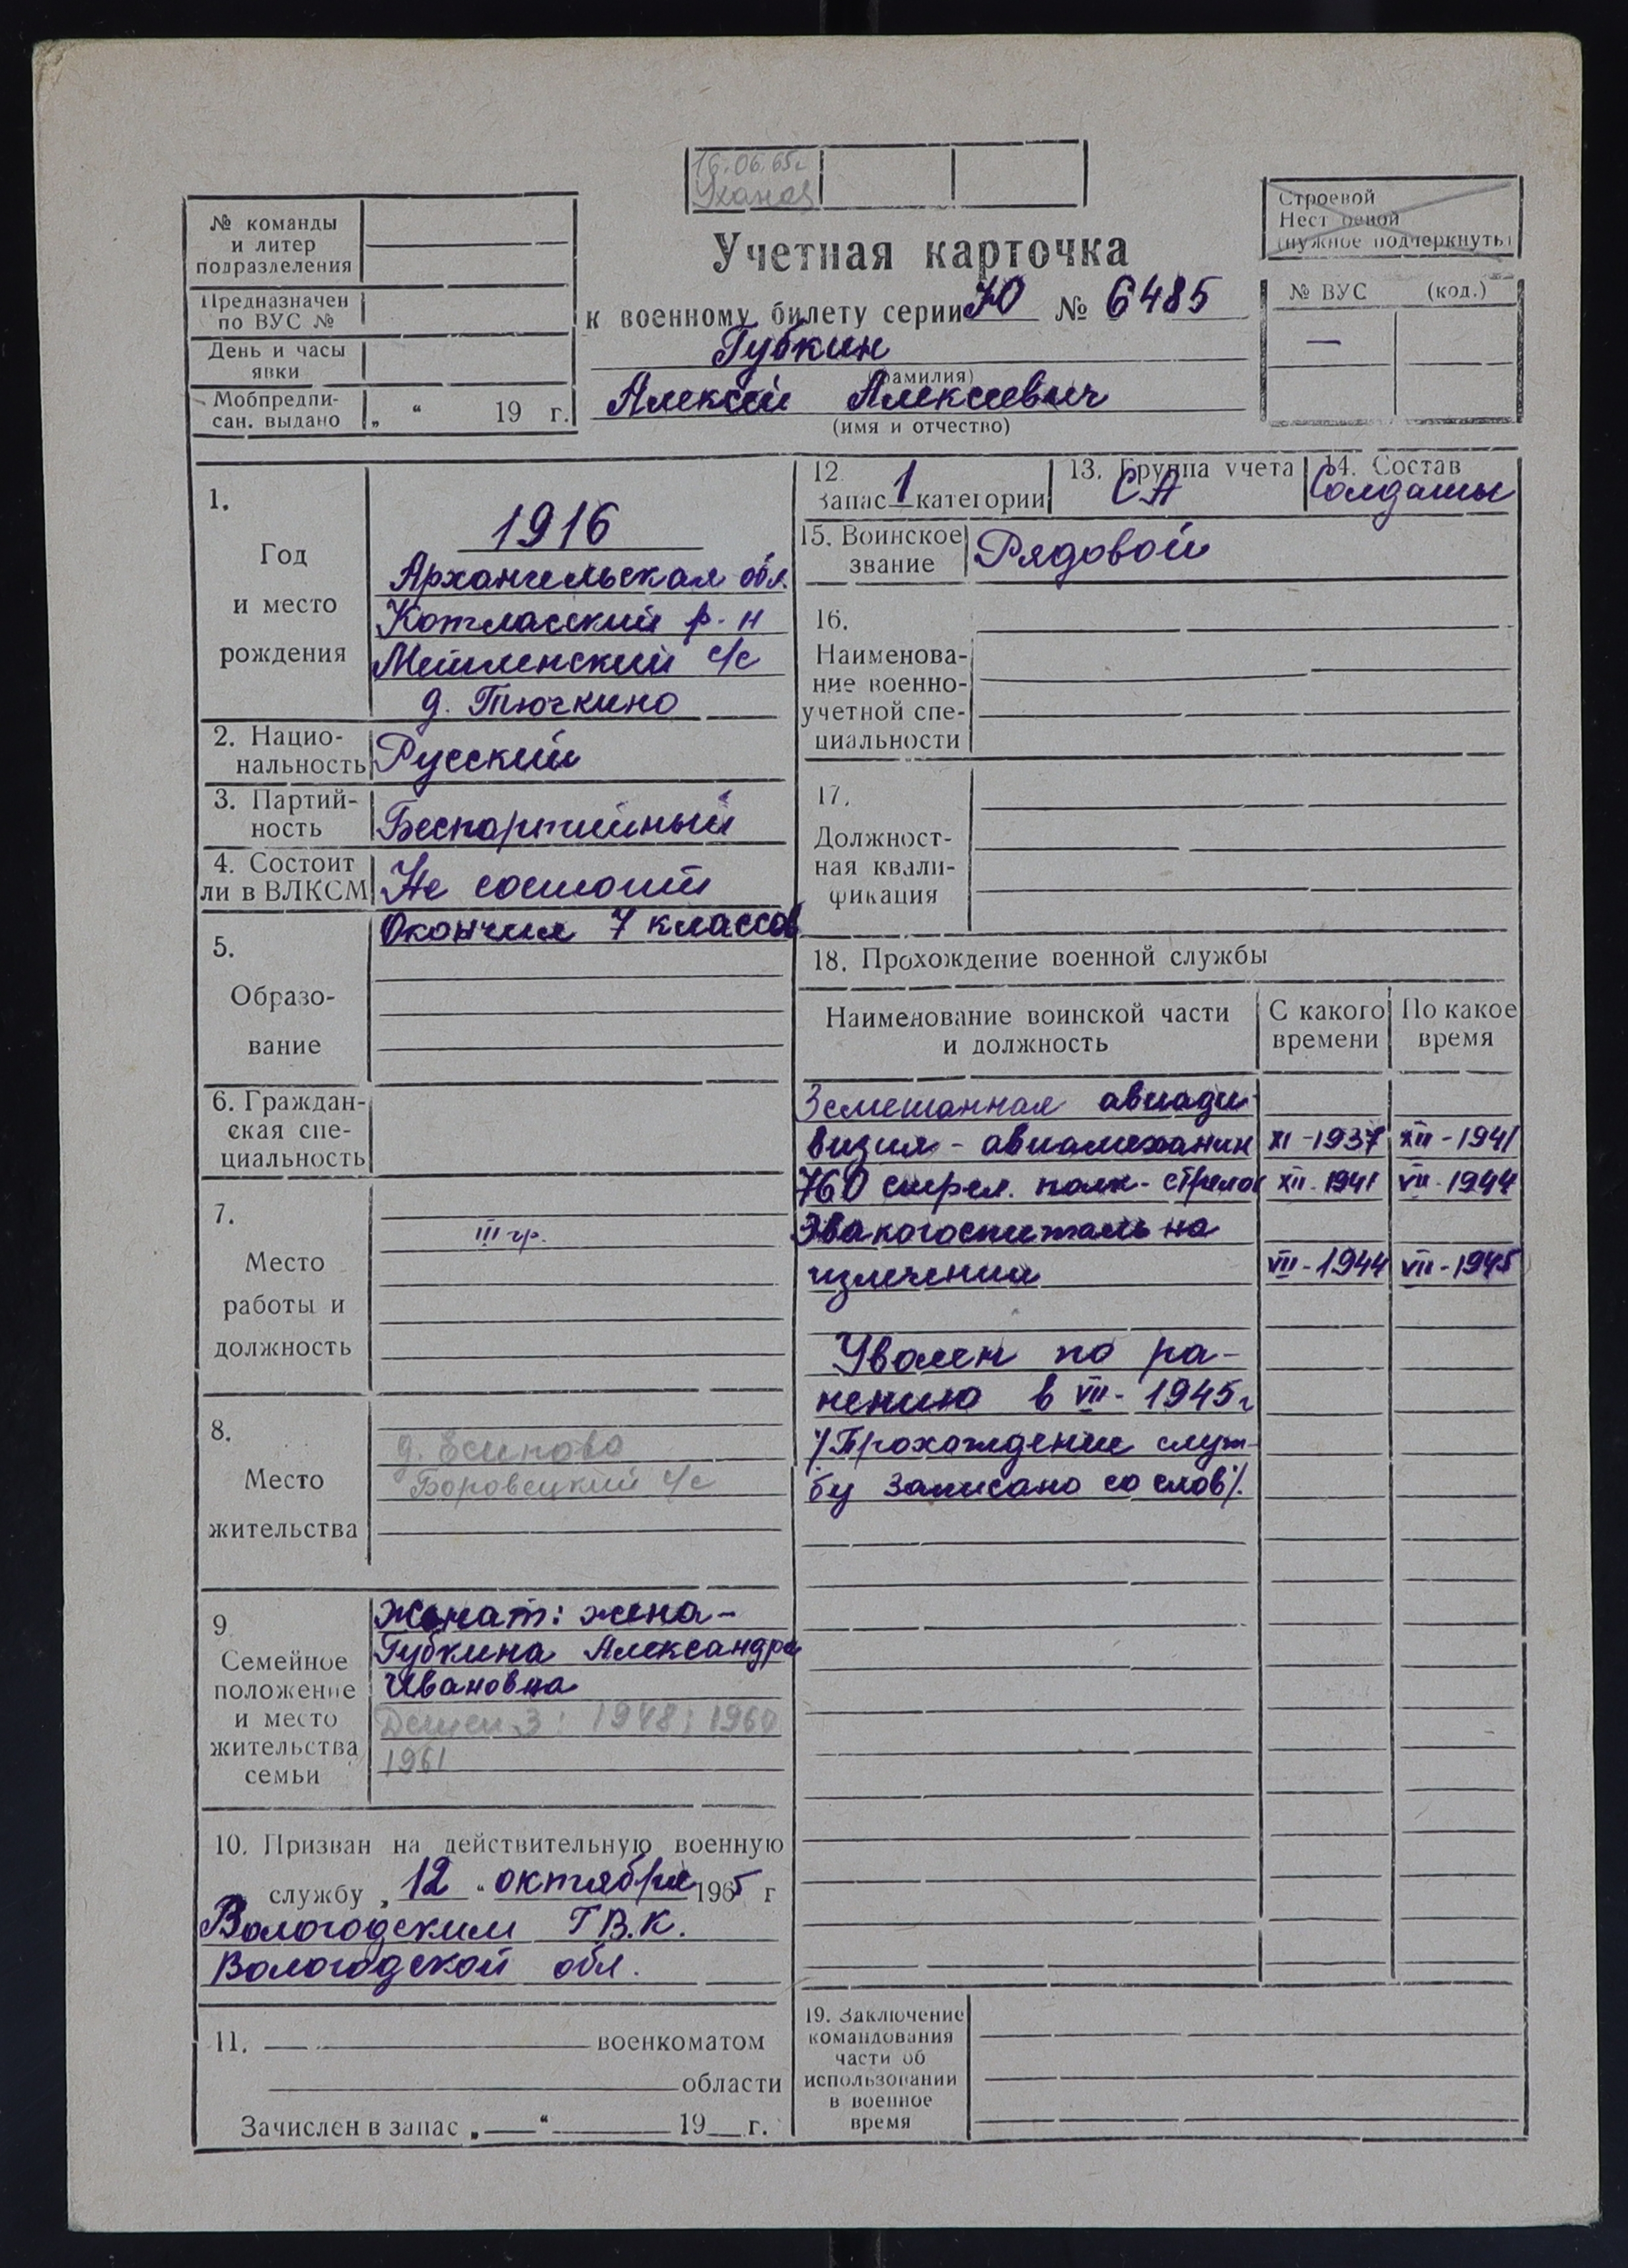 16.06.65г
№ команды
и литер
подразделения
Предназначен
по ВУС №
День и часы
явки
Мобпредпи-
сан. выдано „ “ 19 г.
Учетная карточка
к военному билету серии Ю № 6485
Губкин
(фамилия)
Алексей Алексеевич
(имя и отчество)
Строевой
Нестроевой
(нужное подчеркнуть)
№ ВУС (код.)
—
1.
Год
и место
рождения
1916
Архангельская обл.
Котласский р-н
с/с
д. Тючкино
2. Нацио-
нальность Русский
3. Партий-
ность Беспартийный
4. Состоит
ли в ВЛКСМ Не состоит
5.
Образо-
вание
Окончил 7 классов
6. Граждан-
ская спе-
циальность
7.
Место
работы и
должность
III гр.
8.
Место
жительства
д. Есипово
Боровецкий с/с
9
Семейное
положение
и место
жительства
семьи
Женат: жена-
Губкина Александра
Ивановна
Детей 3: 1948; 1960
1961
10. Призван на действительную военную
службу „ 12 “ октября 1965 г
Вологодским ГВ.К.
Вологодской обл.
11. военкоматом
области
Зачислен в запас „ “ 19 г.
12. Запас 1 категории
13. Группа учета СА
14. Состав Солдаты
15. Воинское
звание Рядовой
16.
Наименова-
ние военно-
учетной спе-
циальности
17.
Должност-
ная квали-
фикация
18. Прохождение военной службы
Наименование воинской части
и должность
С какого
времени
По какое
время
3 смешанная авиади-
визия - авиамеханик XI-1937 XII-1941
760 стрел. полк - стрелок XII-1941 VII-1944
Эвакогоспиталь на
излечении VII-1944 VII-1945
Уволен по ра-
нению в VII-1945г
/Прохождение служ-
бу записано со слов/.
19. Заключение
командования
части об
использовании
в военное
время